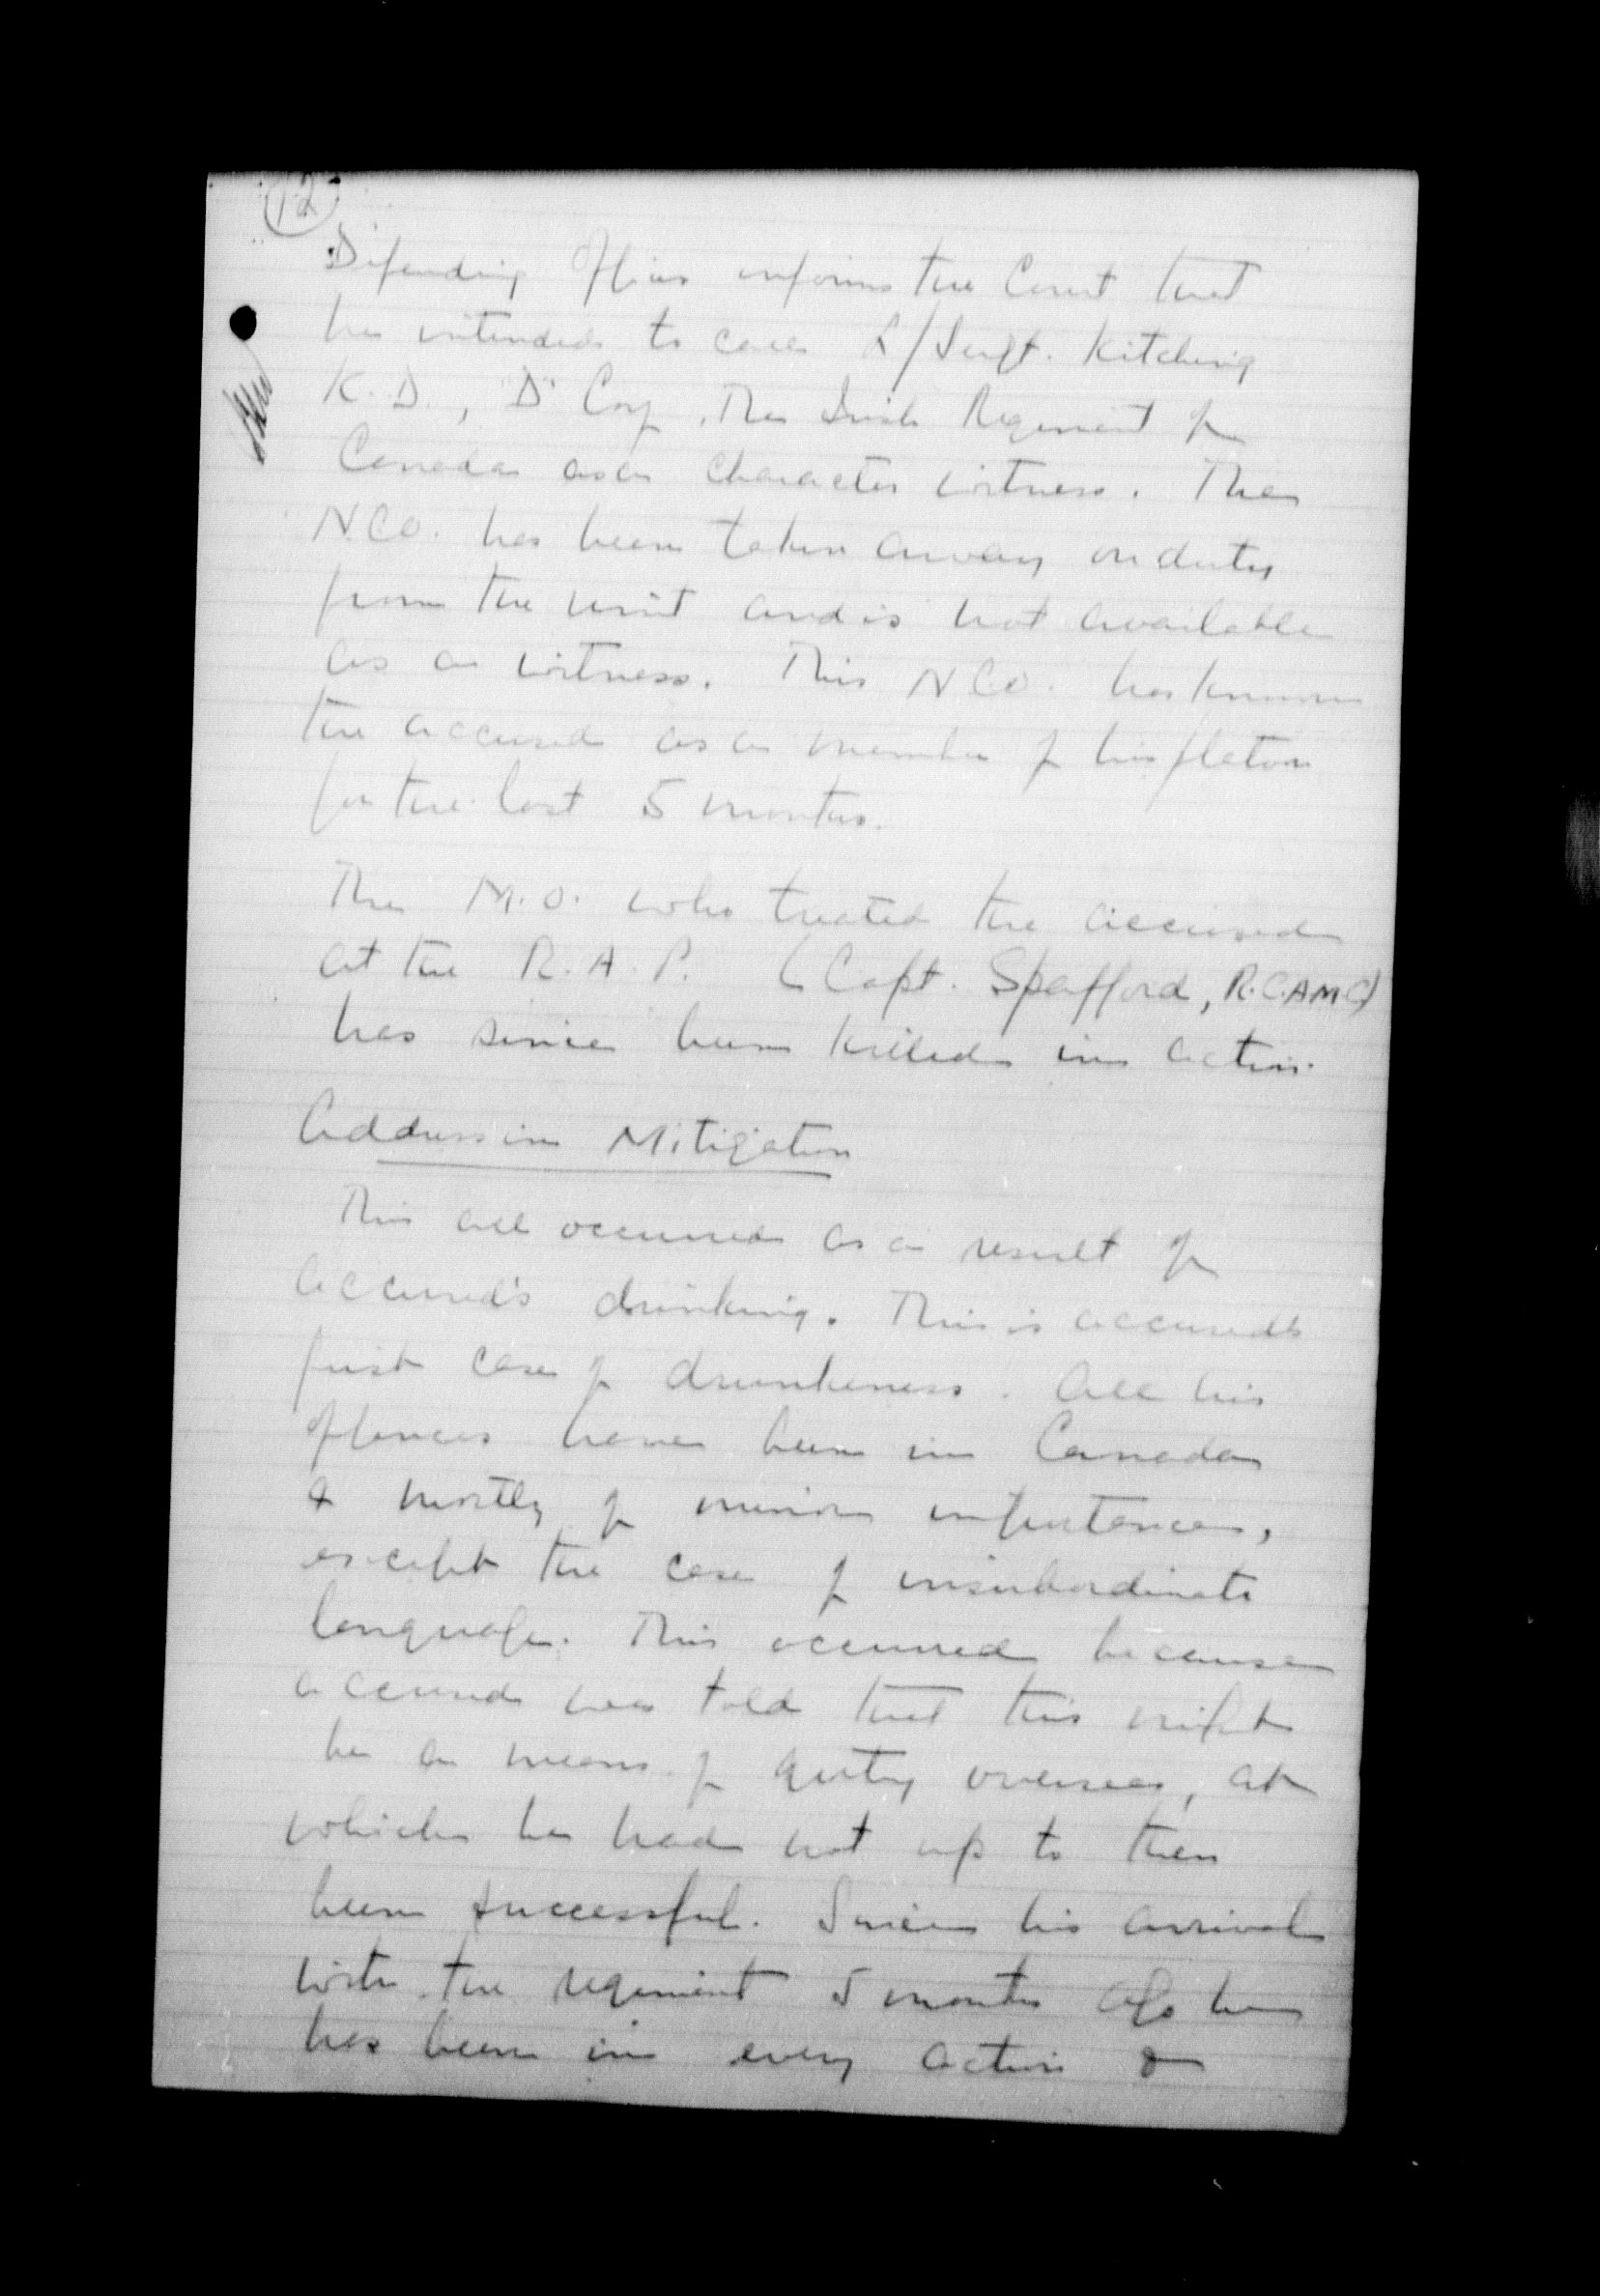 12
Defending Officer informs the Court that
he intended to call L/Sergt. Kitching
K.D., "D" Coy, The Irish Regiment of
Canada as a character witness. The
N.C.O. has been taken away on duty
from the unit and is not available
as a witness. This N.C.O. has known
the accused as a member of his platoon
for the last 5 months.
The M.O. who treated the accused
at the R.A.P. (Capt. Spafford, R.C.A.M.C)
has since been killed in action.
Address in Mitigation
This all occurred as a result of
accused's drinking. This is accused's
first case of drunkeness. All his
offences have been in Canada
& mostly of minor importance,
except the case of insubordinate
language. This occurred because
accused was told that this might
be a means of getting overseas, at
which he had not up to then
been successful. Since his arrival
with the regiment 5 months ago he
has been in every action &